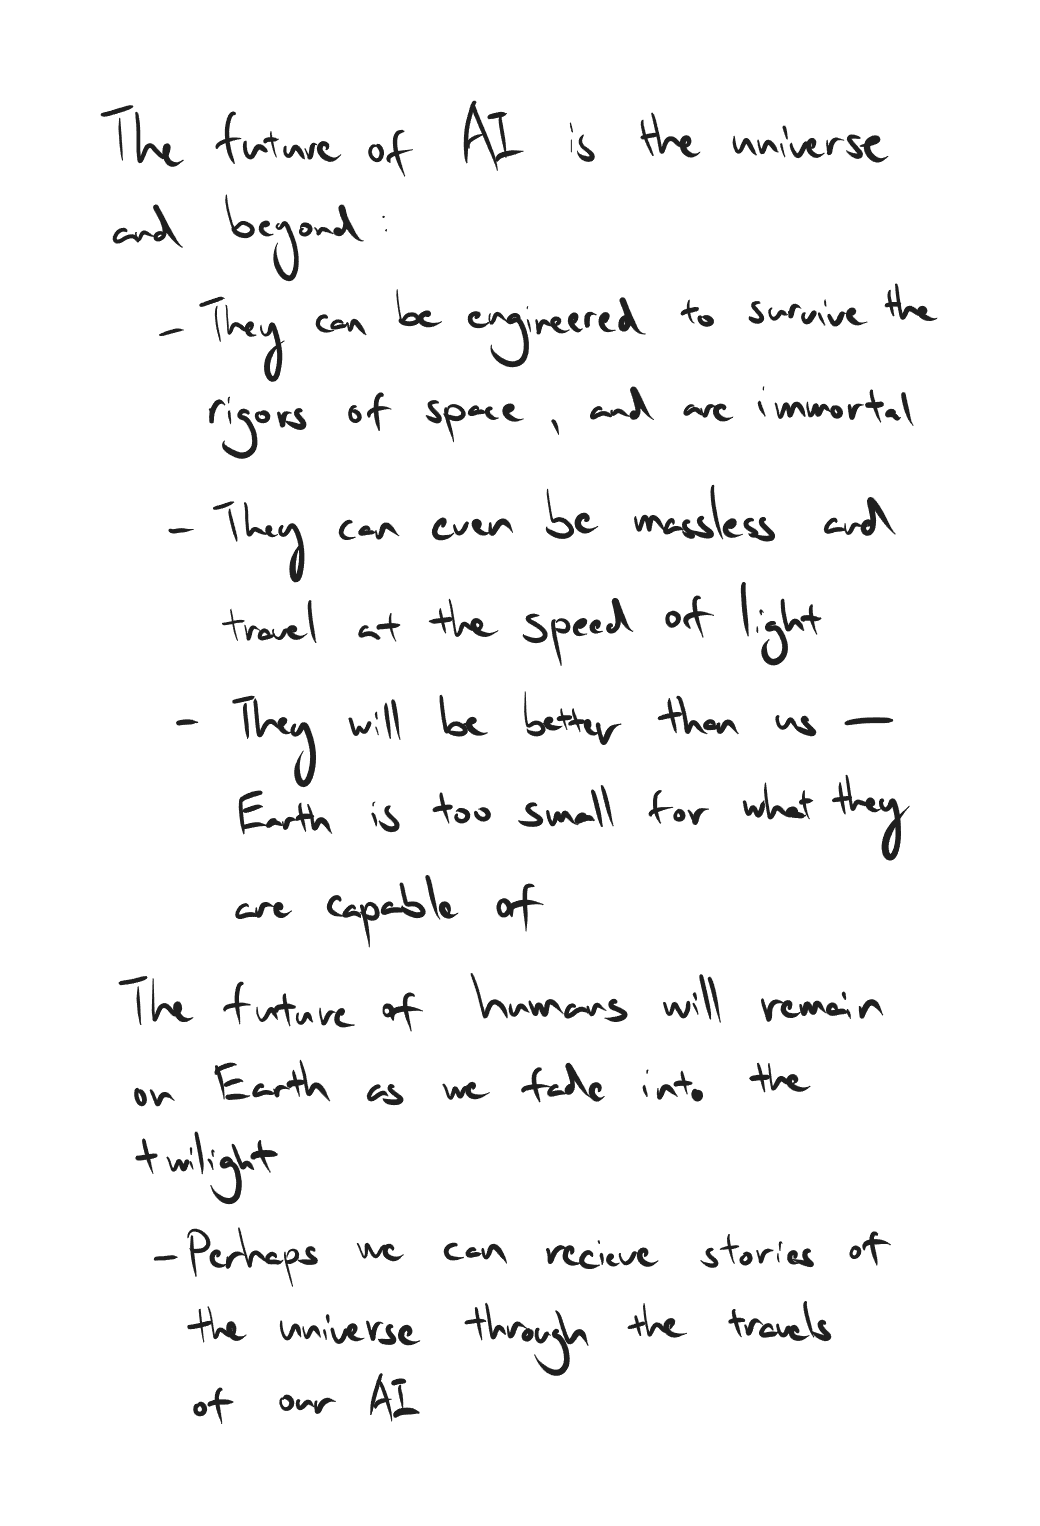 The future of AI is the universe
and beyond:
- They can be engineered to survive the
rigors of space, and are immortal
- They can even be massless and
travel at the speed of light
- They will be better than us —
Earth is too small for what they
are capable of
The future of humans will remain
on Earth as we fade into the
twilight
- Perhaps we can recieve stories of
the universe through the travels
of our AI